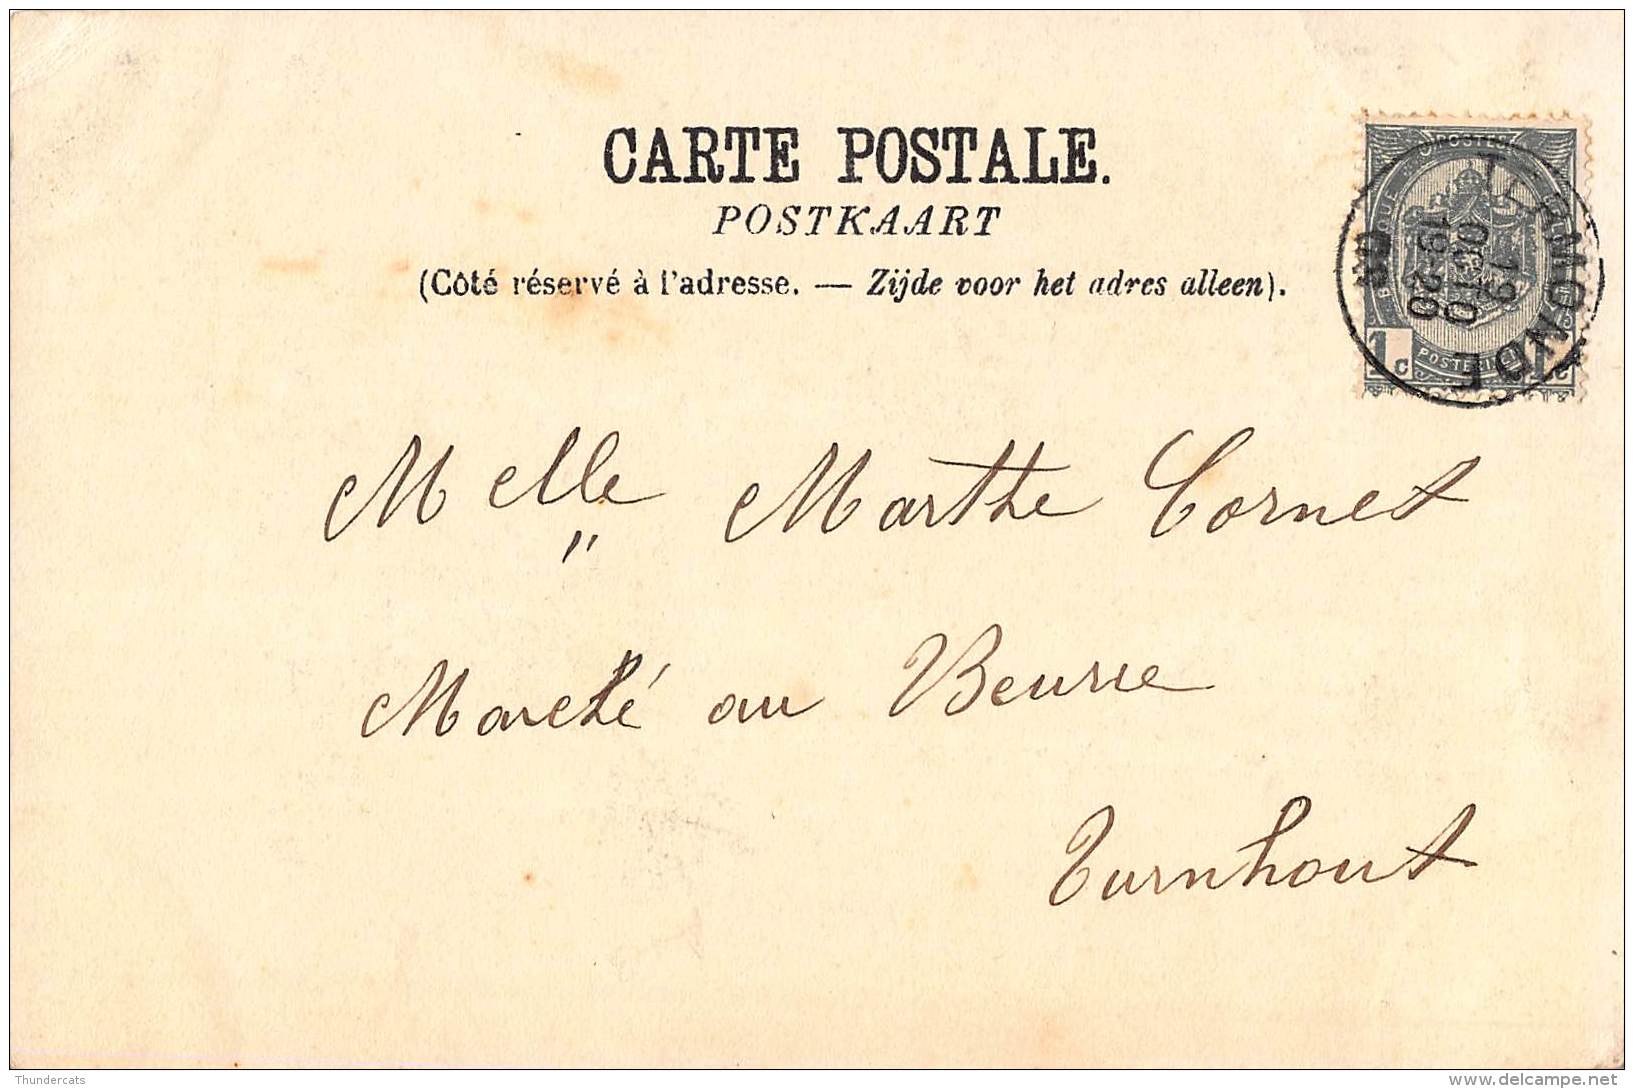 CARTE POSTALE.
POSTKAART
(Côté réservé à l'adresse. — Zijde voor het adres alleen).
POSTES
BELGIQUE
1 c
1 c
TERMONDE
19
OCTO
19-20
Melle Marthe Cornet
Marché au Beurre
Turnhout
Thundercats
delcampe.net